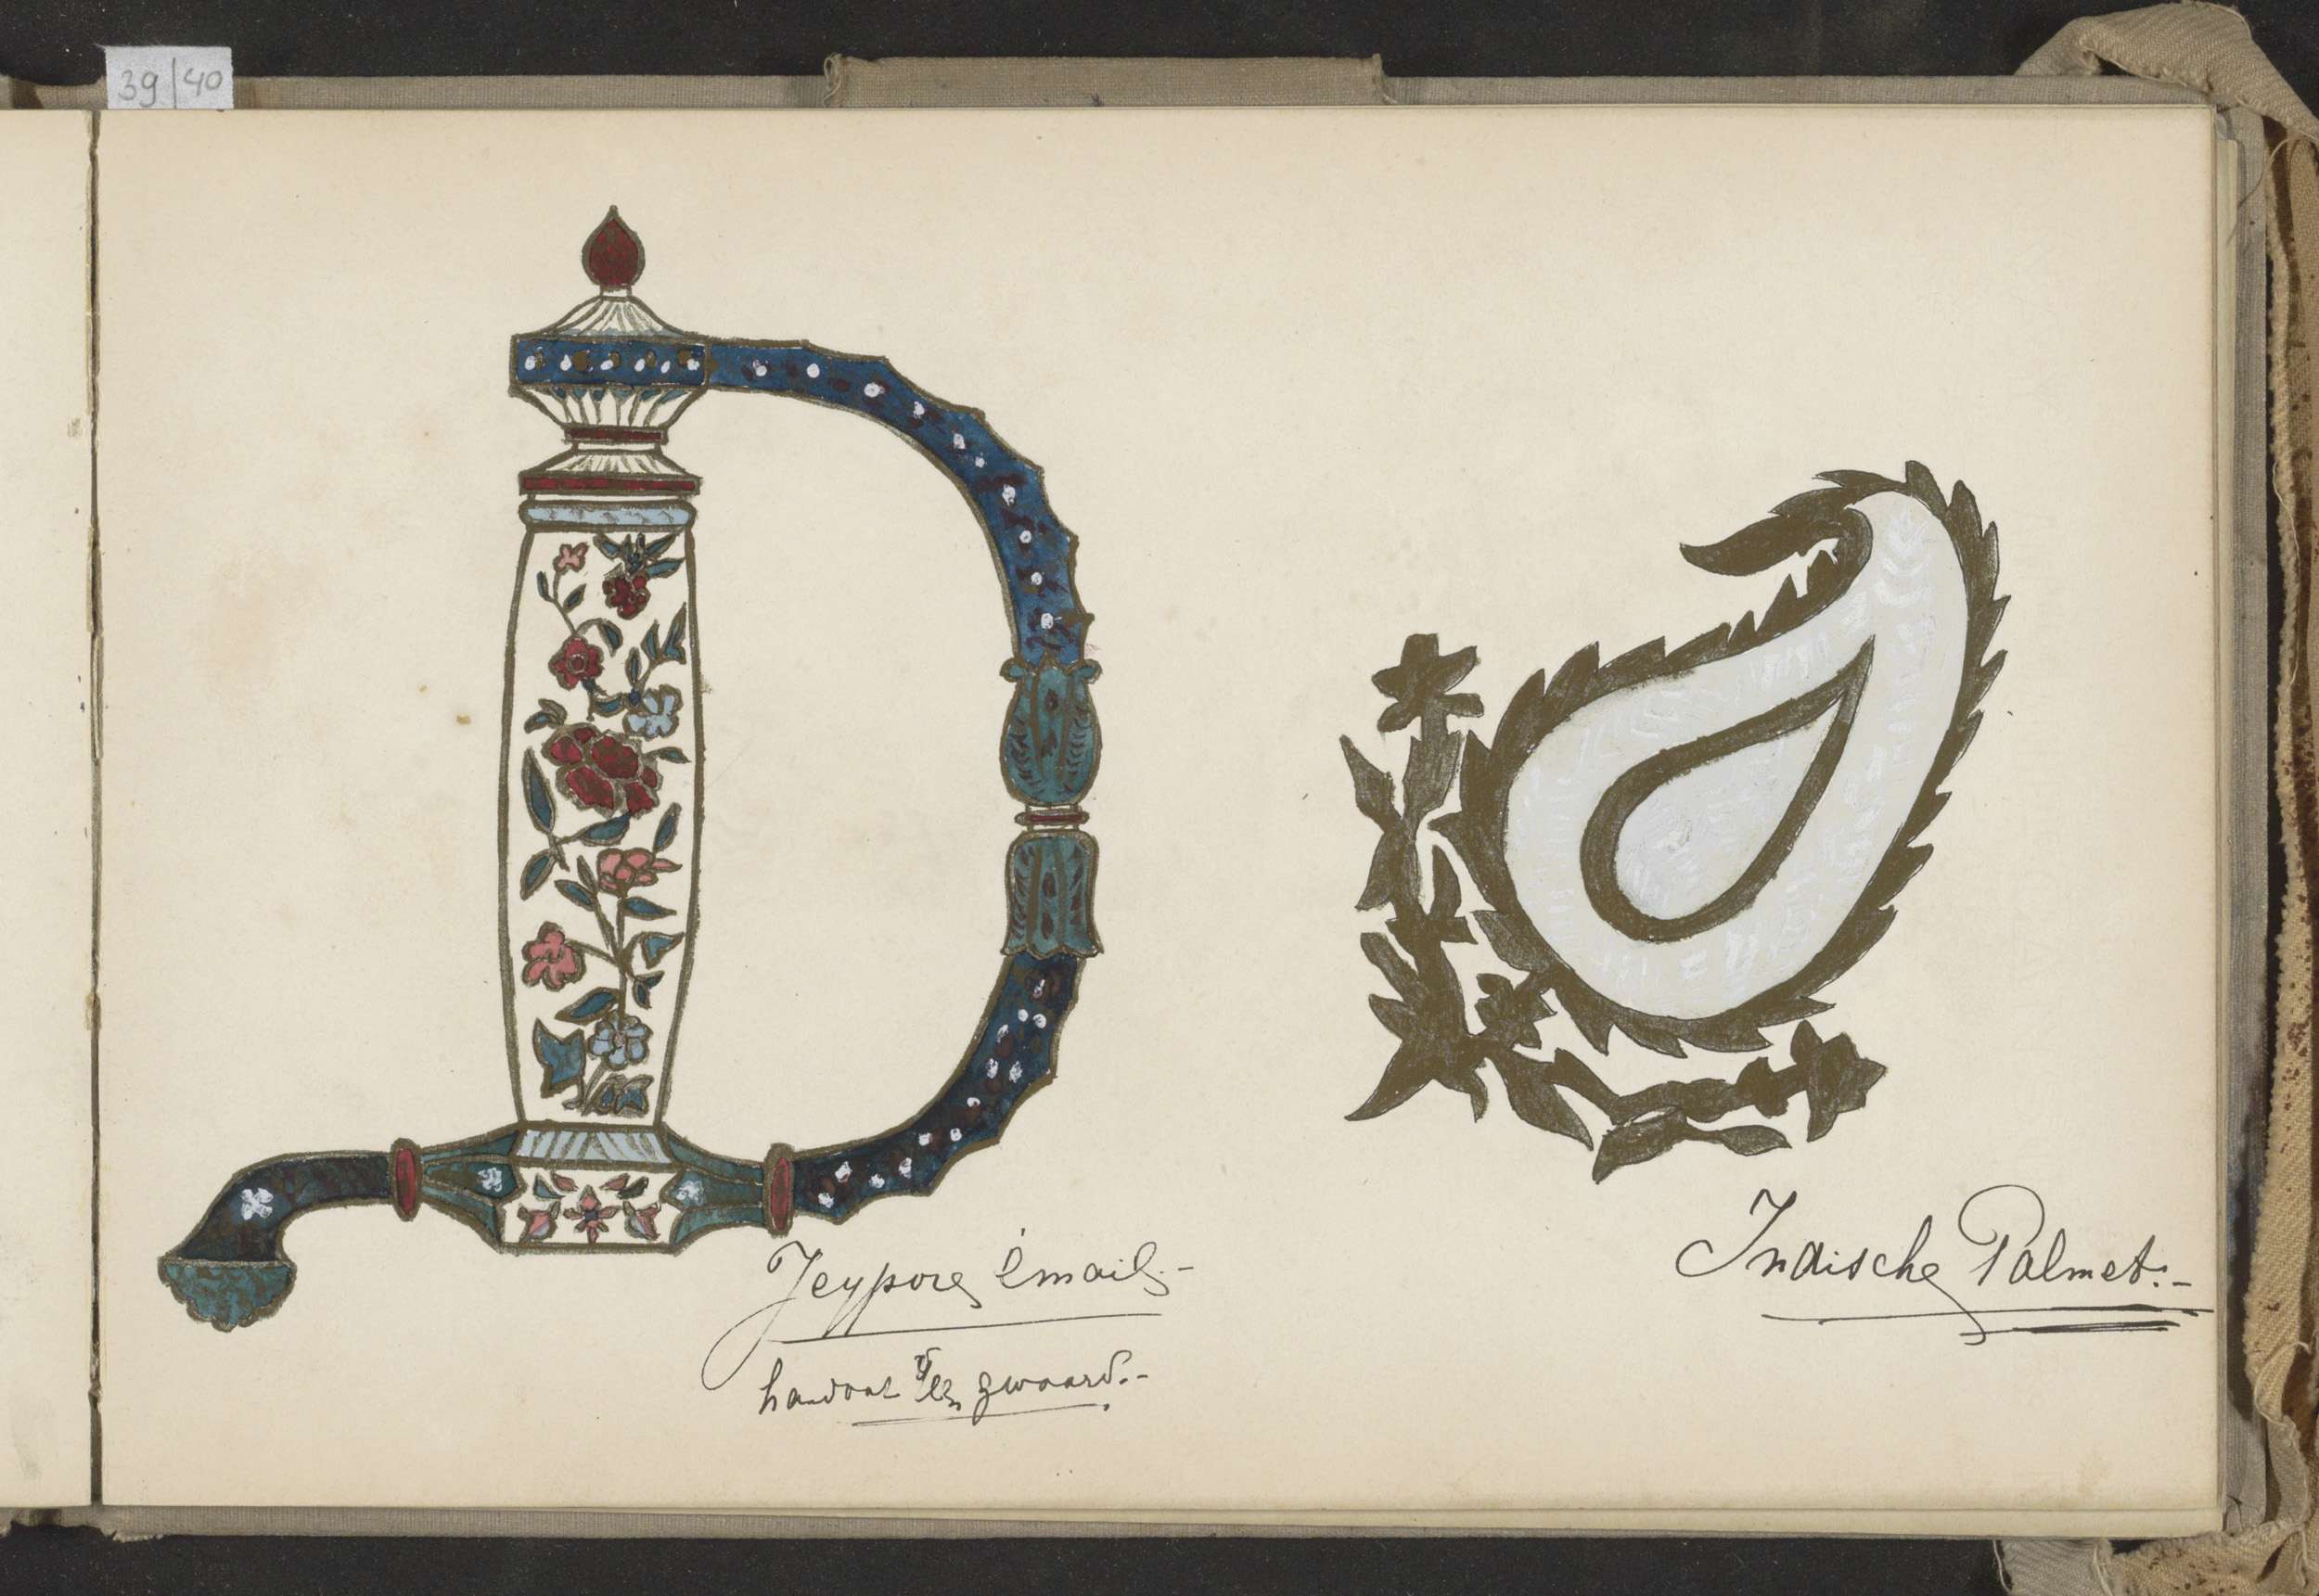 39/40
Jeypore émail.-
handvat v/een zwaard.-
Indische Palmet.-